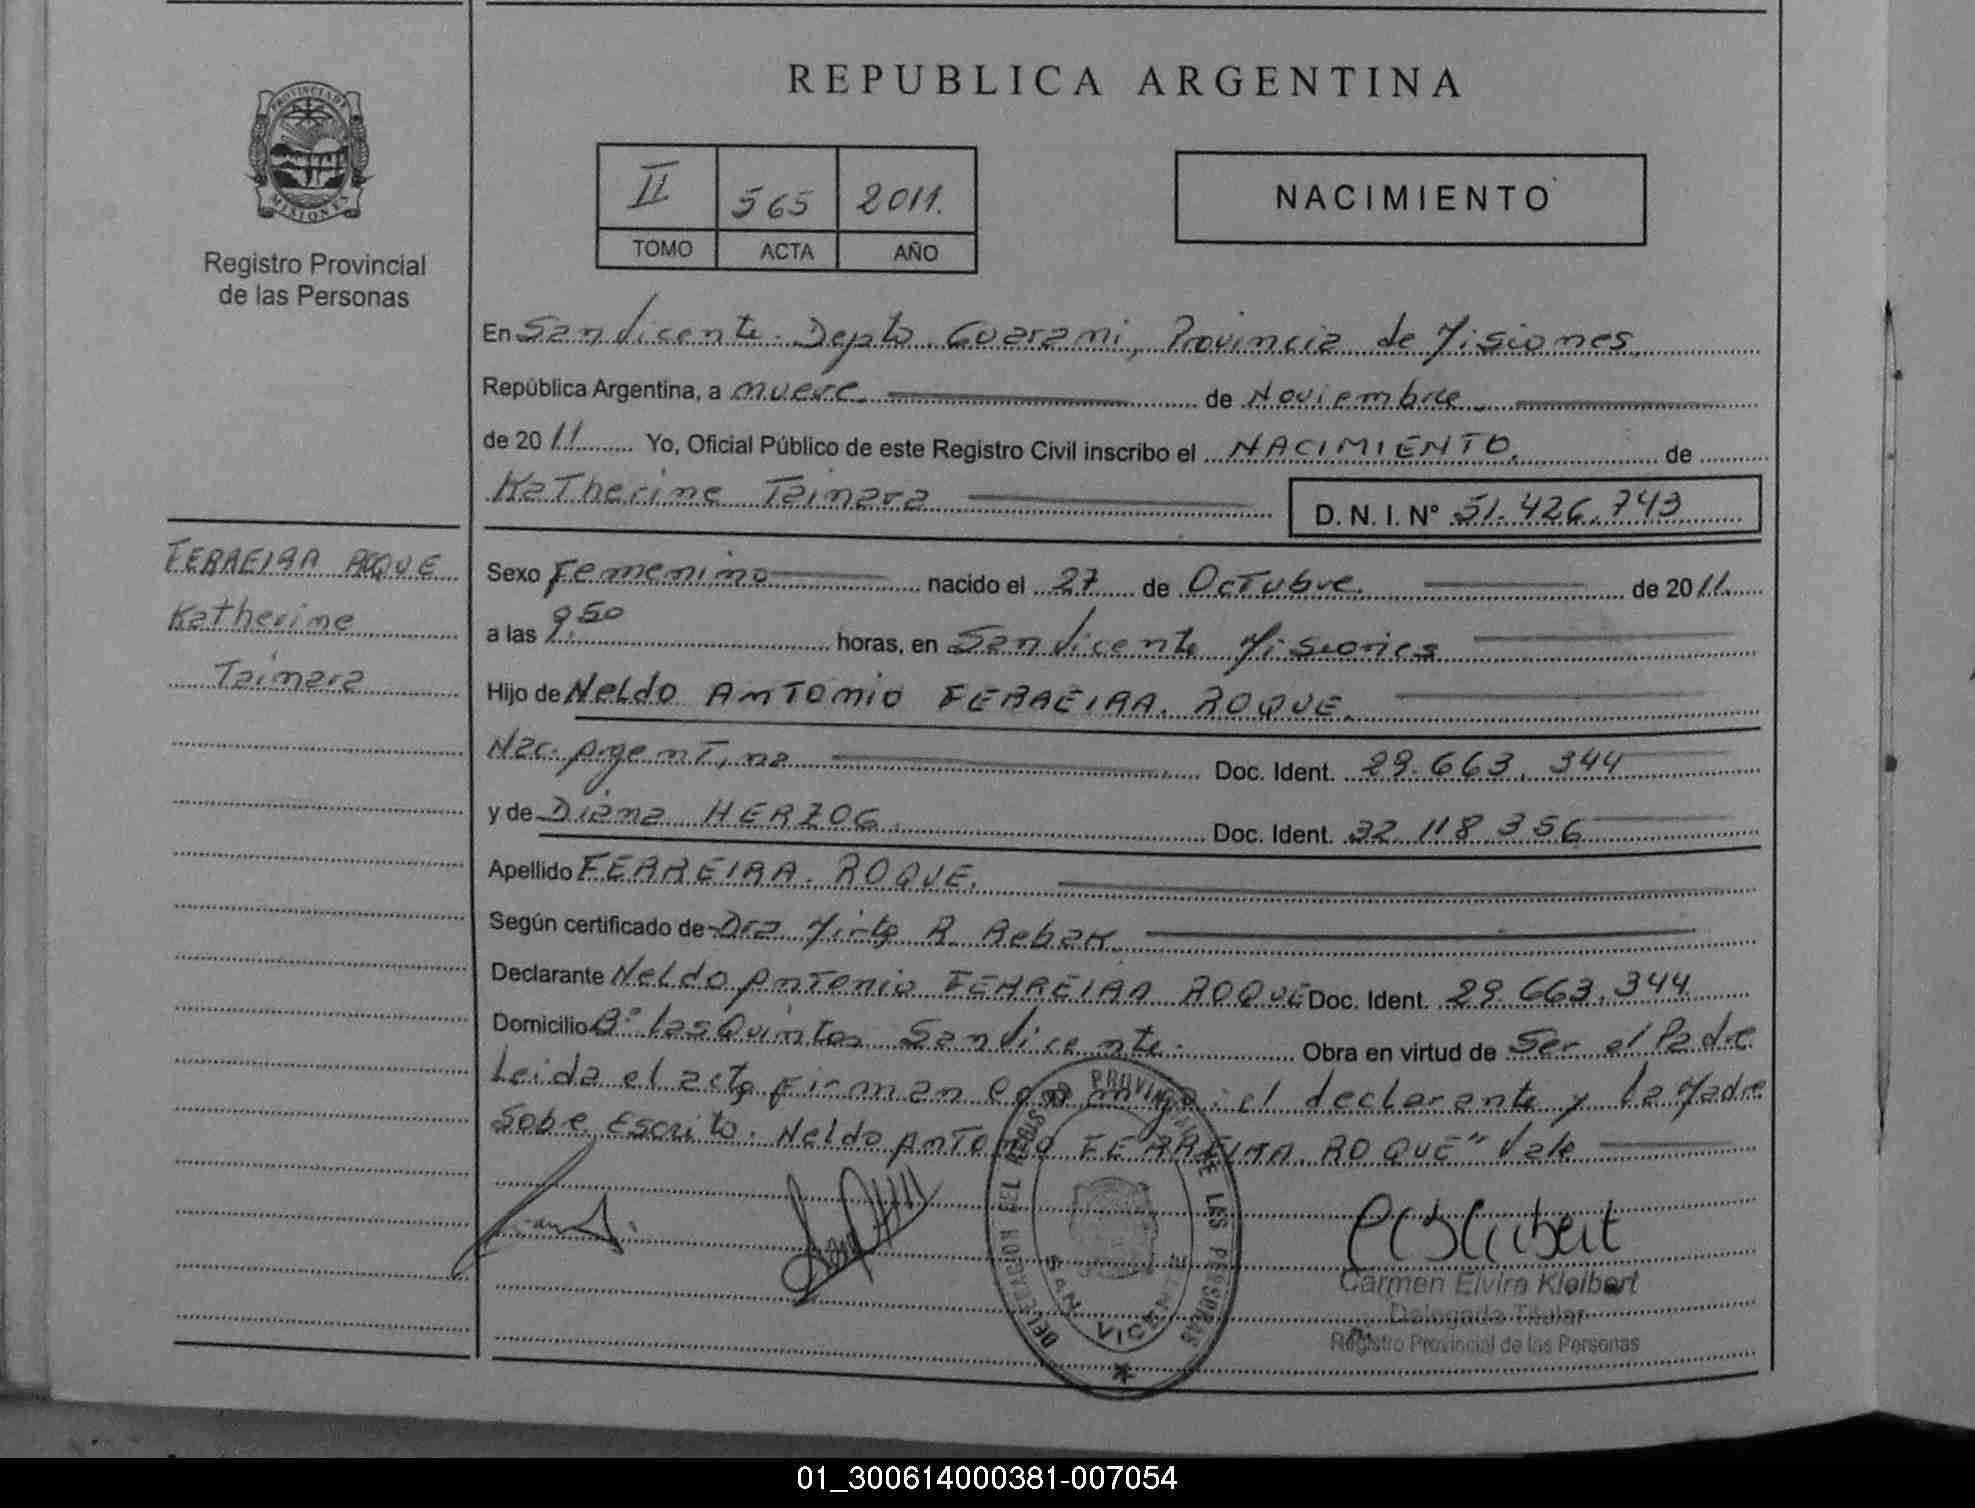 REPUBLICA ARGENTINA
PROVINCIA DE
MISIONES
Registro Provincial
de las Personas
II 565 2011.
TOMO ACTA AÑO
NACIMIENTO
En San Vicente. Depto. Guarani, Provincia de Misiones
República Argentina, a nueve de Noviembre
de 2011 Yo, Oficial Público de este Registro Civil inscribo el NACIMIENTO. de
Katherine Tainara D. N. I. Nº 51.426.743
FERREIRA ROQUE
Katherine
Tainara
Sexo Femenino nacido el 27 de Octubre. de 2011.
a las 9.50 horas, en San Vicente Misiones
Hijo de Neldo Antonio FERREIRA. ROQUE.
Nac. Argentina Doc. Ident. 29.663.344
y de Diana HERZOG. Doc. Ident. 32.118.356
Apellido FERREIRA. ROQUE.
Según certificado de Dra Mirta R. Rebak
Declarante Neldo Antonio FERREIRA ROQUE Doc. Ident. 29.663.344
Domicilio Bº Las Quintas San Vicente. Obra en virtud de Ser el Padre
Leida el acta firman conmigo: el declarante y la Madre
Sobre Escrito. Neldo Antonio FERREIRA. ROQUE" Vale
DELEGACION DEL REGISTRO PROVINCIAL DE LAS PERSONAS
SAN VICENTE
Carmen Elvira Kleibert
Delegada Titular
Registro Provincial de las Personas
01_300614000381-007054